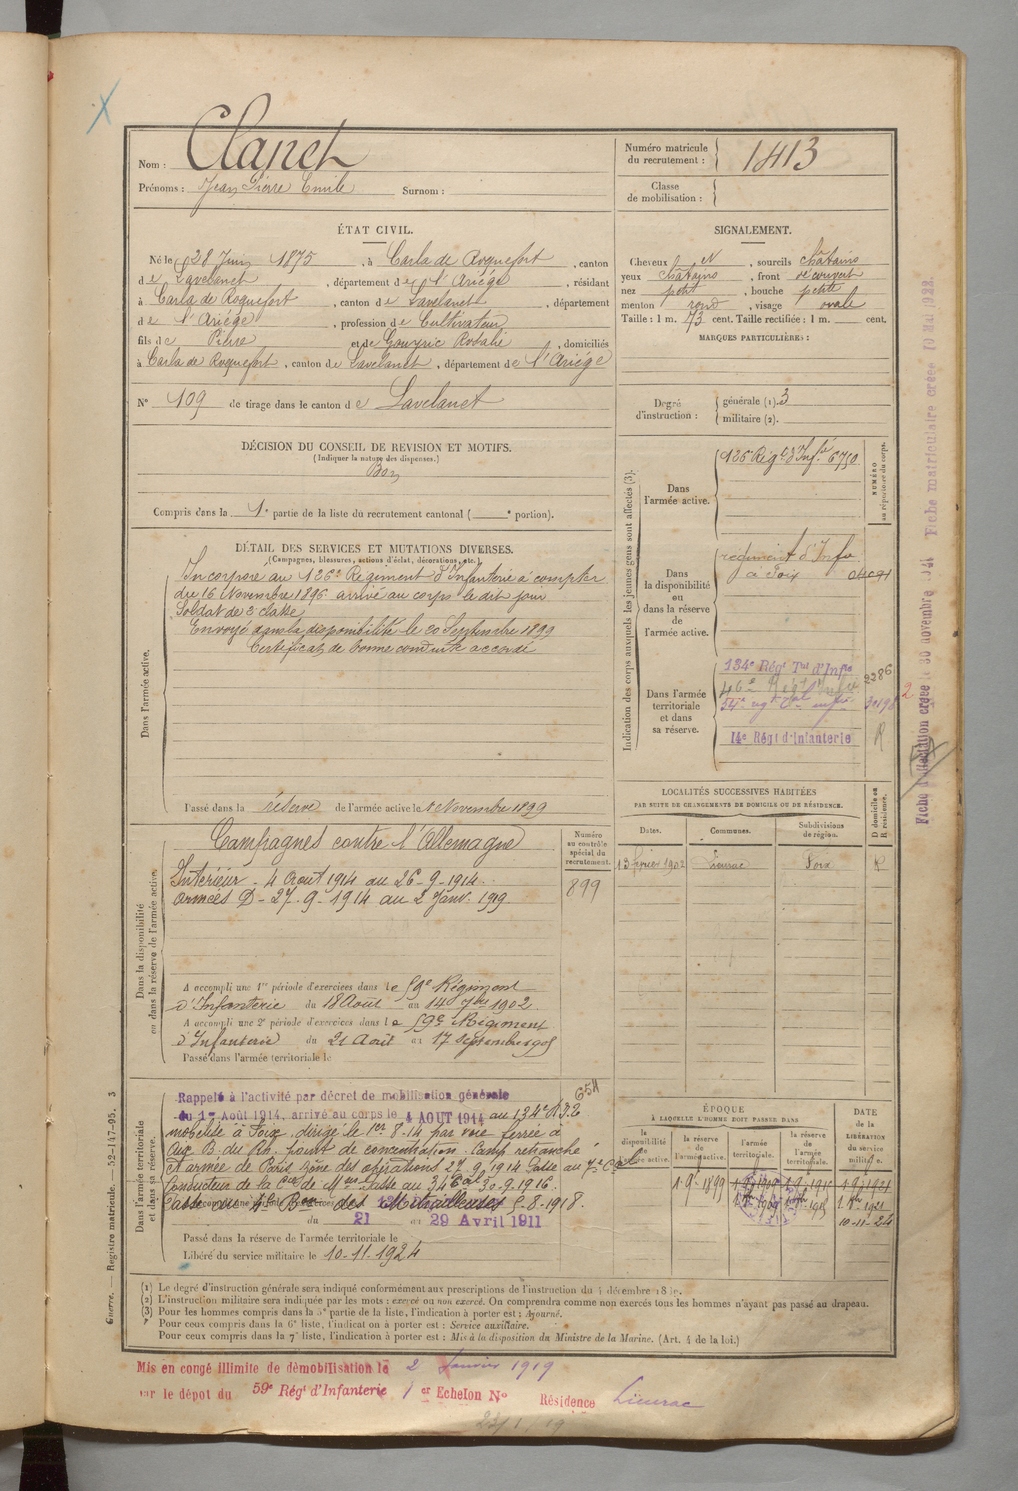 Nom : Clanet
Prénoms : Jean Pierre Emile Surnom :
Numéro matricule du recrutement : 1413
Classe de mobilisation :
ÉTAT CIVIL.
Né le 28 Juin 1875, à Carla de Roquefort, canton
de Lavelanet, département de l'Ariége, résidant
à Carla de Roquefort, canton de Lavelanet, département
de l'Ariége, profession de Cultivateur
fils de Pierre et de Gouyric Rosalie, domiciliés
à Carla de Roquefort, canton de Lavelanet, département de l'Ariége
N° 109 de tirage dans le canton de Lavelanet
SIGNALEMENT.
Cheveux N, sourcils châtains
yeux châtains, front découvert
nez petit, bouche petite
menton rond, visage ovale
Taille : 1 m. 73 cent. Taille rectifiée : 1 m. cent.
MARQUES PARTICULIÈRES :
Degré d'instruction : générale (1). 3
militaire (2).
DÉCISION DU CONSEIL DE REVISION ET MOTIFS.
(Indiquer la nature des dispenses.)
Bon
Compris dans la 1e partie de la liste du recrutement cantonal ( e portion).
DÉTAIL DES SERVICES ET MUTATIONS DIVERSES.
(Campagnes, blessures, actions d'éclat, décorations, etc.)
Dans l'armée active.
Incorporé au 126e Régiment d'Infanterie à compter
du 16 Novembre 1896 arrivé au corps le dit jour
Soldat de 2e classe
Envoyé dans la disponibilité le 20 Septembre 1899
Certificat de bonne conduite accordé
Passé dans la réserve de l'armée active le 1 Novembre 1899
Indication des corps auxquels les jeunes gens sont affectés (3).
NUMÉRO au répertoire du corps.
Dans l'armée active. 126 Régt d'Infie 6750
Dans la disponibilité ou dans la réserve de l'armée active.
régiment d'Infie
à Foix
Dans l'armée territoriale et dans sa réserve.
134e Régt Tal d'Infie 2286
14e Régt d'Infanterie R
LOCALITÉS SUCCESSIVES HABITÉES
PAR SUITE DE CHANGEMENTS DE DOMICILE OU DE RÉSIDENCE.
Dates. Communes. Subdivisions de région. D domicile ou R résidence.
1902 Lieurac Foix R
Dans la disponibilité ou dans la réserve de l'armée active.
Campagnes contre l'Allemagne
Intérieur - 4 Aout 1914 au 26-9-1914.
armées D - 27-9-1914 au 2 Janv. 1919
Numéro au contrôle spécial du recrutement.
899
A accompli une 1re période d'exercices dans le 59e Régiment
d'Infanterie du 18 Août au 14 7bre 1902
A accompli une 2e période d'exercices dans le 59e Régiment
d'Infanterie du 21 Août au 17 septembre 1905
Passé dans l'armée territoriale le
Dans l'armée territoriale et dans sa réserve.
Rappelé à l'activité par décret de mobilisation générale
du 1er Août 1914, arrivé au corps le 4 AOUT 1914 au 134e R.I.T. 654
mobilisé à Foix, dirigé le 8-14 par voie ferrée à
point de concentration. Camp retranché
et armée de Paris, zône des opérations 27-9-1914 Passe au 7e Cal
Conducteur de la Cie de Mses Passe au 34e Cal 30-9-1916.
Passe au Bon des Mitrailleuses -8-1918.
du 21 au 29 Avril 1911
Passé dans la réserve de l'armée territoriale le
Libéré du service militaire le 10-11-1924
ÉPOQUE
À LAQUELLE L'HOMME DOIT PASSER DANS
la disponibilité de l'armée active. la réserve de l'armée active. l'armée territoriale. la réserve de l'armée territoriale.
DATE de la LIBÉRATION du service militaire.
1-9-1899 1-9-1909 1-9-1915 1-9-1921
10-11-24
(1) Le degré d'instruction générale sera indiqué conformément aux prescriptions de l'instruction du 4 décembre 1889.
(2) L'instruction militaire sera indiquée par les mots : exercé ou non exercé. On comprendra comme non exercés tous les hommes n'ayant pas passé au drapeau.
(3) Pour les hommes compris dans la 5e partie de la liste, l'indication à porter est : Ajourné.
Pour ceux compris dans la 6e liste, l'indication à porter est : Service auxiliaire.
Pour ceux compris dans la 7e liste, l'indication à porter est : Mis à la disposition du Ministre de la Marine. (Art. 4 de la loi.)
Mis en congé illimité de démobilisation le 2 Janvier 1919
par le dépot du 59e Régt d'Infanterie 1er Echelon N° Résidence Lieurac
Guerre. — Registre matricule. — 52-147-95. 3